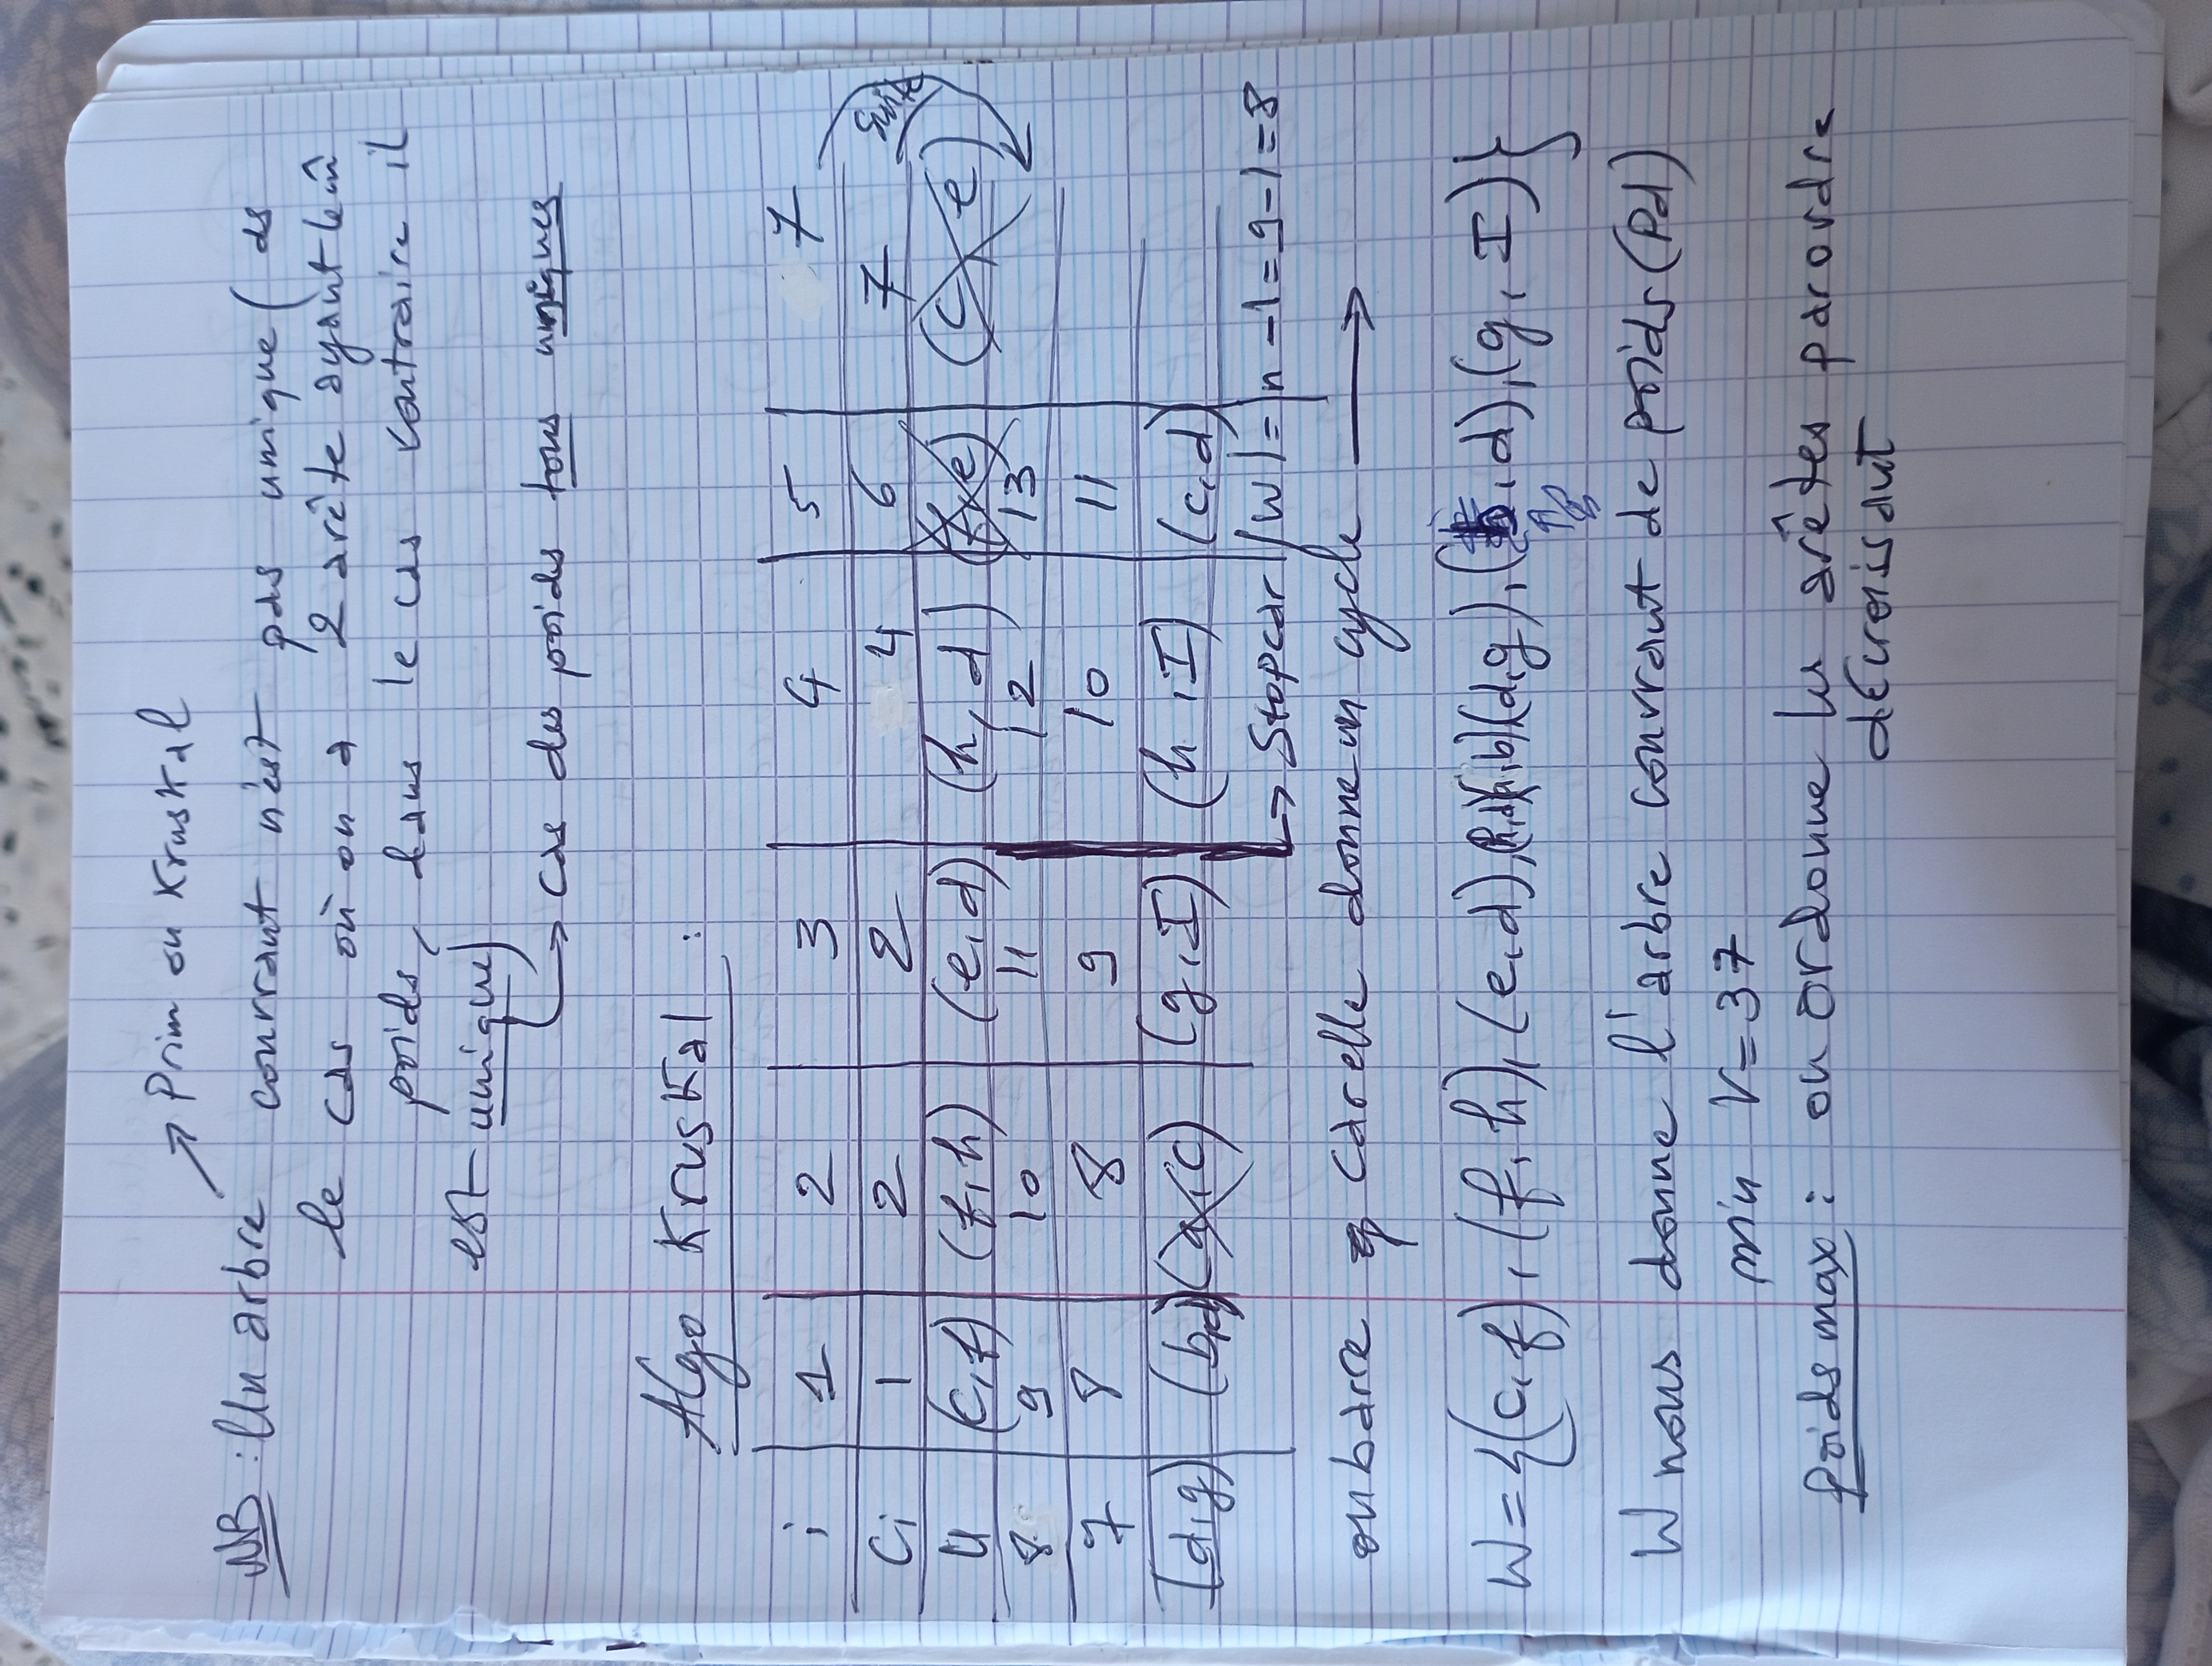 → Prim ou Kruskal
NB : Un arbre couvrant n'est pas unique ( ds
le cas où on a 2 arête ayant le m̂
poids, dans le cas contraire il
est unique)
→ cas des poids tous uniques
Algo Kruskal :
i 1 2 3 4 5 7
Ci 1 2 2 4 6 7 Suite
U (c,f) (f,h) (e,d) (h,d) (f,e) (c,e)
8 9 10 11 12 13
7 8 8 9 10 11
(d,g) (b,d) (a,c) (g,I) (h,I) (c,d)
→ Stop car |W| = n-1 = 9-1 = 8
on barre car elle donne un cycle →
W = {(c,f), (f,h), (e,d), (h,d)(a,b)(d,g), (b,d), (g,I)}
W nous donne l'arbre couvrant de poids (Pd)
min V = 37
poids max : on ordonne les arêtes par ordre
décroissant